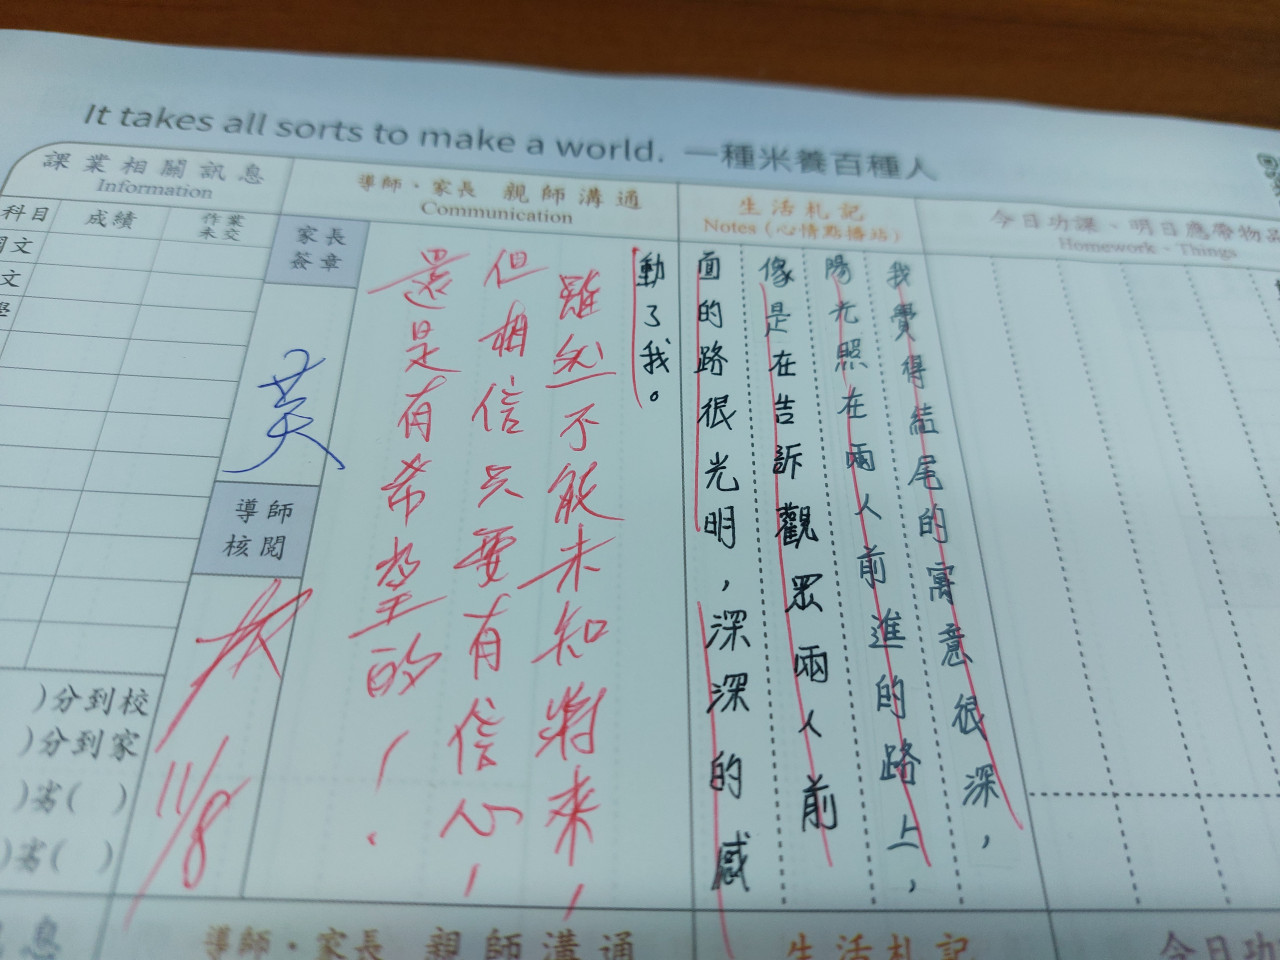 It takes all sorts to make a world. 一種米養百種人
課業相關訊息
Information
導師、家長 親師溝通
Communication
生活札記
Notes (心情點播站)
今日功課、明日應帶物品
Homework、Things
科目
成績
作業未交
家長簽章
國文
文
學
導師核閱
我覺得結尾的寓意很深，
陽光照在兩人前進的路上，
像是在告訴觀眾兩人前
面的路很光明，深深的感
動了我。
雖然不能未知將來，
但相信只要有信心，
還是有希望的！
11/8
)分到校
)分到家
)劣( )
)劣( )
訊息
導師、家長 親師溝通
生活札記
今日功